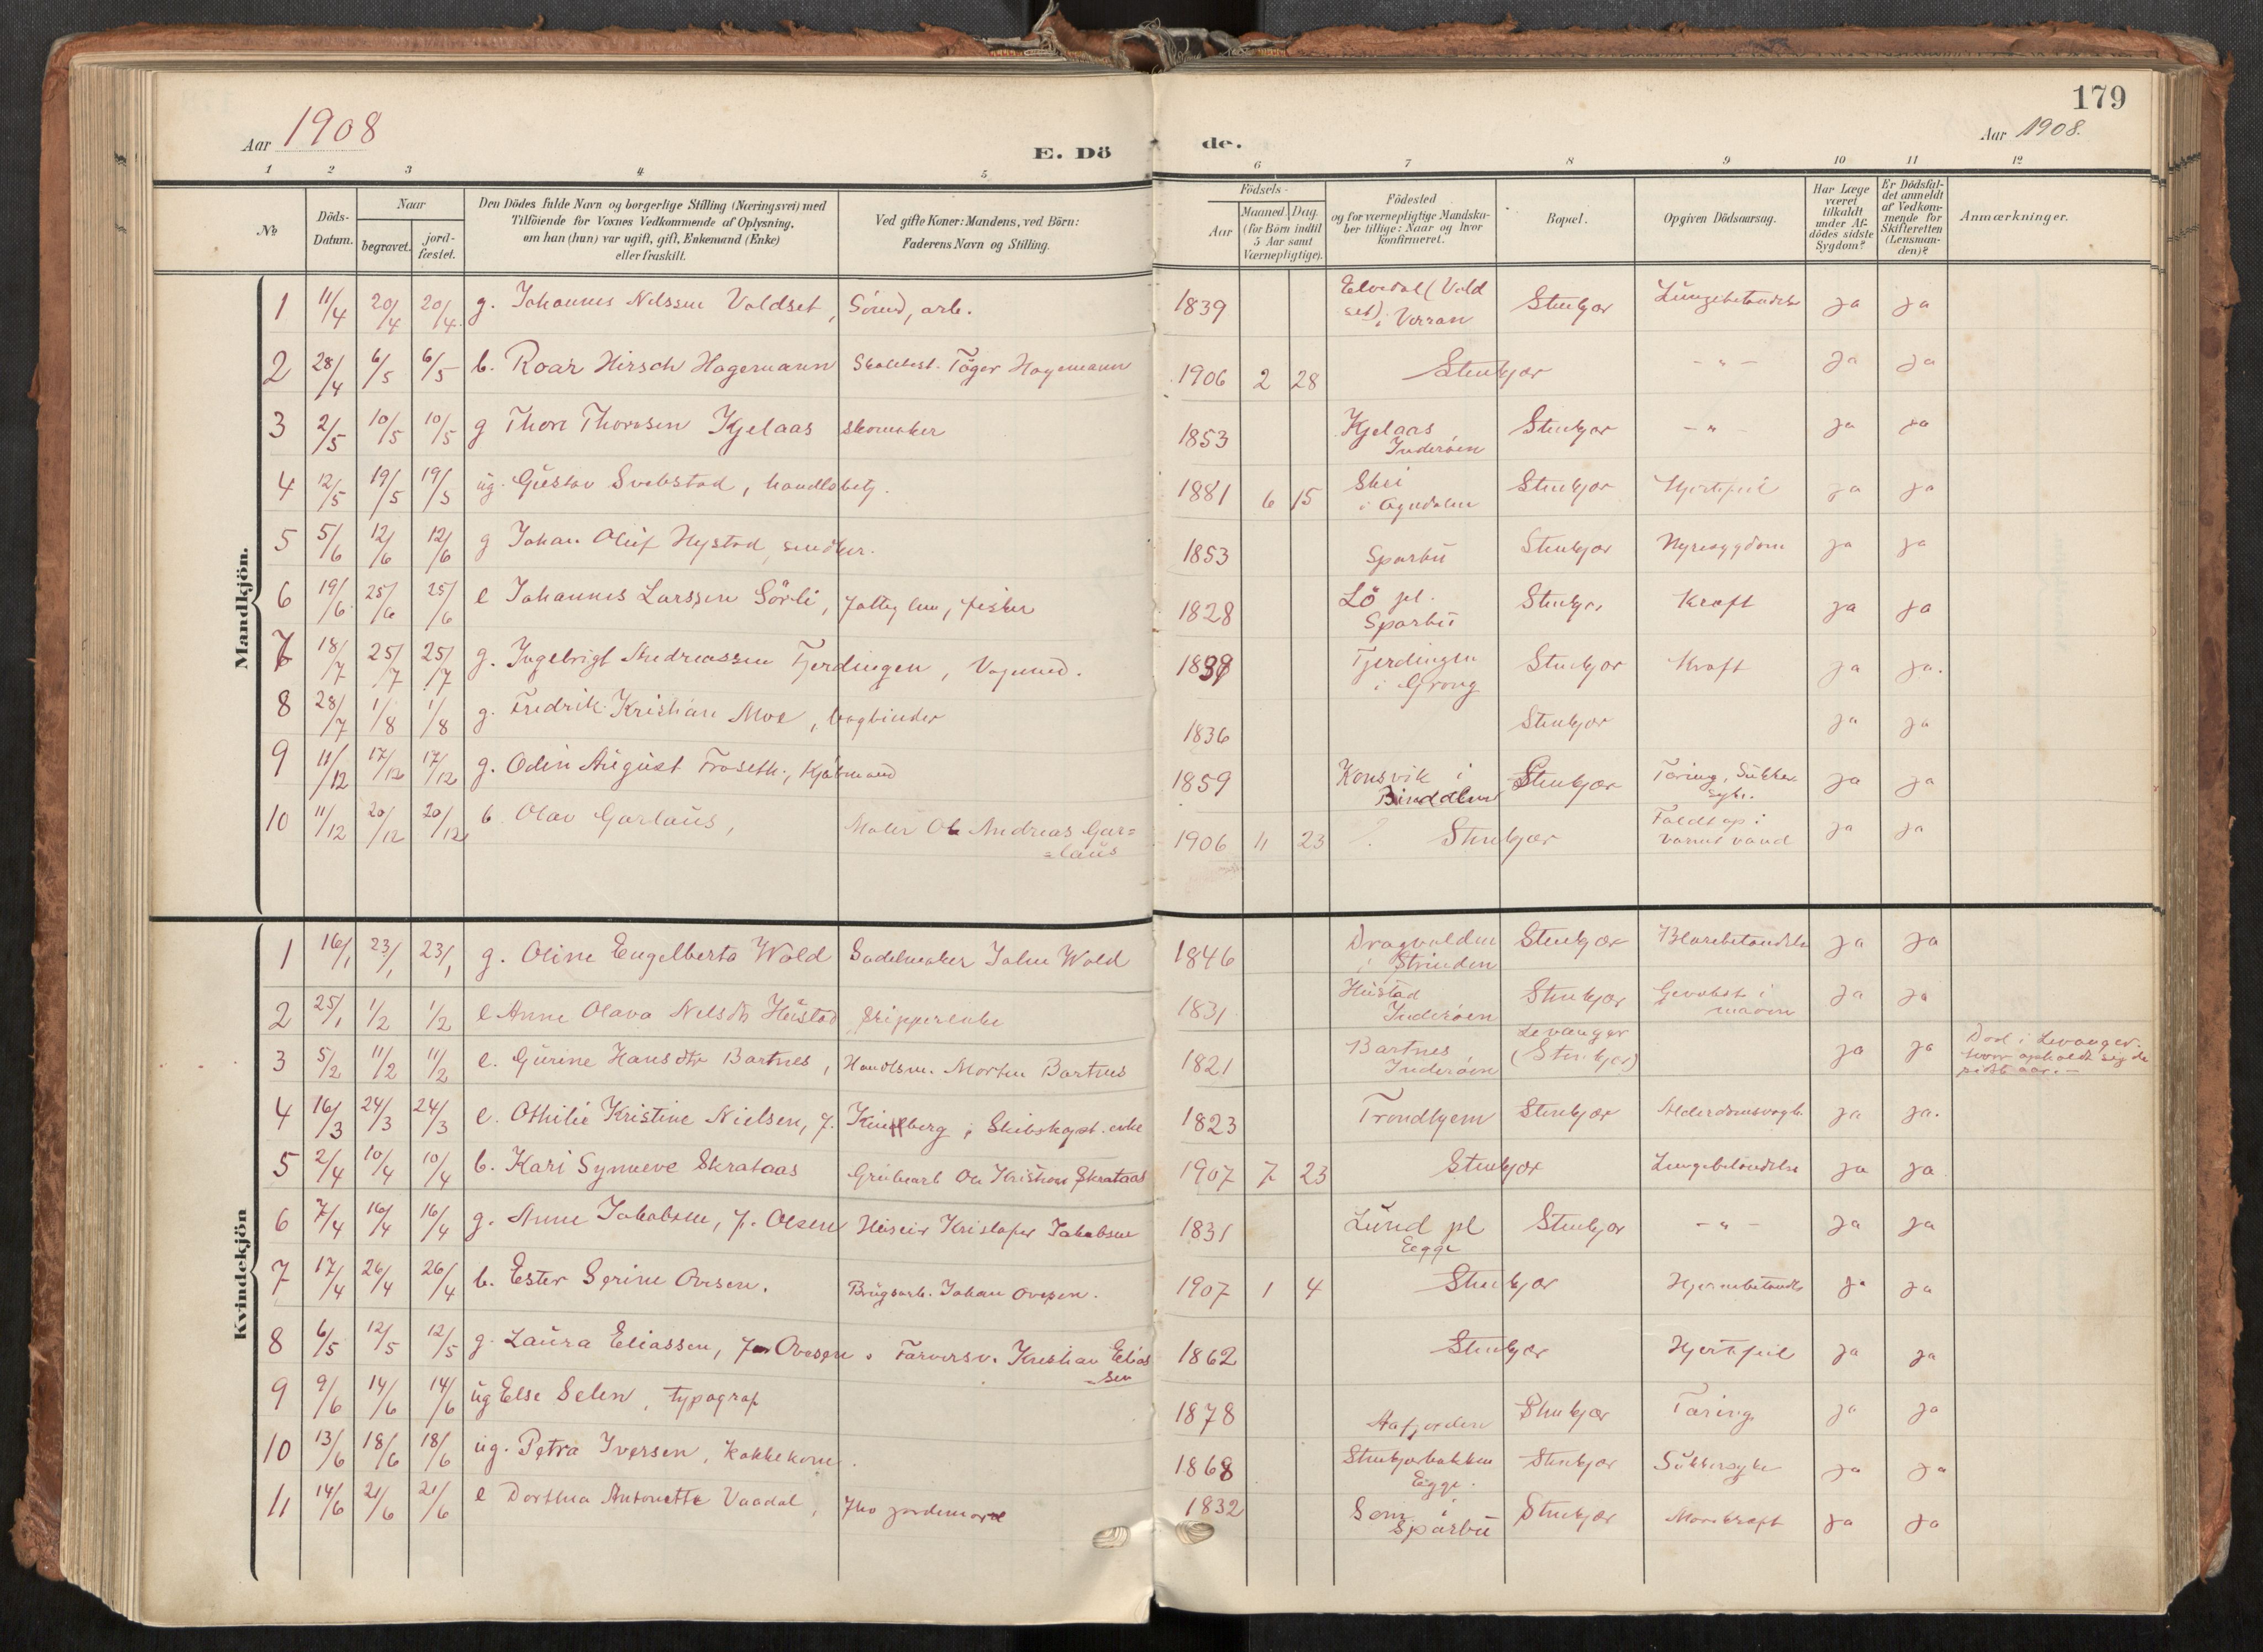 179
Aar 1908
Aar 1908.
E. Dö de.
1 2 3 4 5 6 7 8 9 10 11 12
№
Döds-Datum.
Naar
begravet.
jord-fæstet.
Den Dödes fulde Navn og borgerlige Stilling (Næringsvei) med
Tilföiende for Voxnes Vedkommende af Oplysning,
om han (hun) var ugift, gift, Enkemand (Enke)
eller fraskilt.
Ved gifte Koner: Mandens, ved Börn:
Faderens Navn og Stilling.
Födsels-
Aar
Maaned. Dag.
(for Börn indtil
5 Aar samt
Værnepligtige).
Födested
og for værnepligtige Mandska-
ber tillige: Naar og hvor
konfirmeret.
Bopæl.
Opgiven Dödsaarsag.
Har Læge
været
tilkaldt
under Af-
dödes sidste
Sygdom?
Er Dödsfal-
det anmeldt
af Vedkom-
mende for
Skifteretten
(Lensman-
den)?
Anmærkninger.
Mandkjön.
1 11/4 20/4 20/4 g. Johannes Nilssen Valdset, arb. 1839 Elvedal (Vald
set) i Verran Stenkjær Lungebetændelse ja ja
2 28/4 6/5 6/5 b. Roar Hirsch Hagemann Töger Hagemann 1906 2 28 Stenkjær - " - ja ja
3 2/5 10/5 10/5 g Thore Thoresen Kjelaas skomaker 1853 Kjelaas
Inderöen Stenkjær - " - ja ja
4 12/5 19/5 19/5 ug. Gustav Svebstad, handlsbetj. 1881 6 15 Skei
i Ogndalen Stenkjær Hjertefeil ja ja
5 5/6 12/6 12/6 g Johan Oluf Hystad, snedker. 1853 Sparbu Stenkjær Nyresygdom ja ja
6 19/6 25/6 25/6 e Johannes Larssen Sörli, fattiglem, fisker 1828 Lö pl.
Sparbu Stenkjær Kræft ja ja
7 18/7 25/7 25/7 g. Ingebrigt Andreassen Fjerdingen, Vognmd. 1839 Fjerdingen
i Grong Stenkjær Kræft ja ja.
8 28/7 1/8 1/8 g. Fredrik Kristian Moe, bogbinder 1836 Stenkjær ja ja
9 11/12 17/12 17/12 g. Odin August Froseth, Kjöbmand 1859 Konsvik i
Binddalen Stenkjær Tæring, Sukker
syke. ja ja
10 11/12 20/12 20/12 b. Olav Garlaus, Maler Ole Andreas Gar=
=laus 1906 11 23 Stenkjær Faldt op i
varmt vand ja ja
Kvindekjön
1 16/1 23/1 23/1 g. Oline Engelberta Wold Sadelmaker John Wold 1846 Dragvolden
i Strinden Stenkjær Blærebetændelse ja ja
2 25/1 1/2 1/2 e Anne Olava Nelsdtr Hustad skipperenke 1831 Hustad
Inderöen Stenkjær Gevekst i
maven ja ja
3 5/2 11/2 11/2 e. Gurine Hansdtr Bartnes, Handlsm. Morten Bartnes 1821 Bartnes
Inderöen Levanger
(Stenkjær) ja ja Död i Levanger.
hvor opholdt sig de
sidste aar. —
4 16/3 24/3 24/3 e. Othilie Kristine Nielsen, f. Skibskapt. enke 1823 Trondhjem Stenkjær Alderdomssvagh. ja ja.
5 2/4 10/4 10/4 b. Kari Synneve Skrataas Grubearb Ole Kristian Skrataas 1907 7 23 Stenkjær Lungebetændelse ja ja
6 7/4 16/4 16/4 g. Anne Jakobsen, f. Olsen Huseier Kristofer Jakobsen 1831 Lund pl
Egge Stenkjær - " - ja ja
7 17/4 26/4 26/4 b. Ester Serine Ovesen. Brugsarb. Johan Ovesen. 1907 1 4 Stenkjær Hjernebetændls ja ja
8 6/5 12/5 12/5 g. Laura Eliassen, f. Ovesen. Farversv. Kristian Elias
sen 1862 Stenkjær Hjertefeil ja ja
9 9/6 14/6 14/6 ug Else Selen, typograf 1878 Aafjorden Stenkjær Tæring ja ja
10 13/6 18/6 18/6 ug. Petra Iversen, kokkekone. 1868 Stenkjærbakken
Egge. Stenkjær Sukkersyke ja ja
11 14/6 21/6 21/6 e Dorthea Antonette Vaadal, fhv jordemor 1832 Sem i
Sparbu Stenkjær Mavekræft ja ja